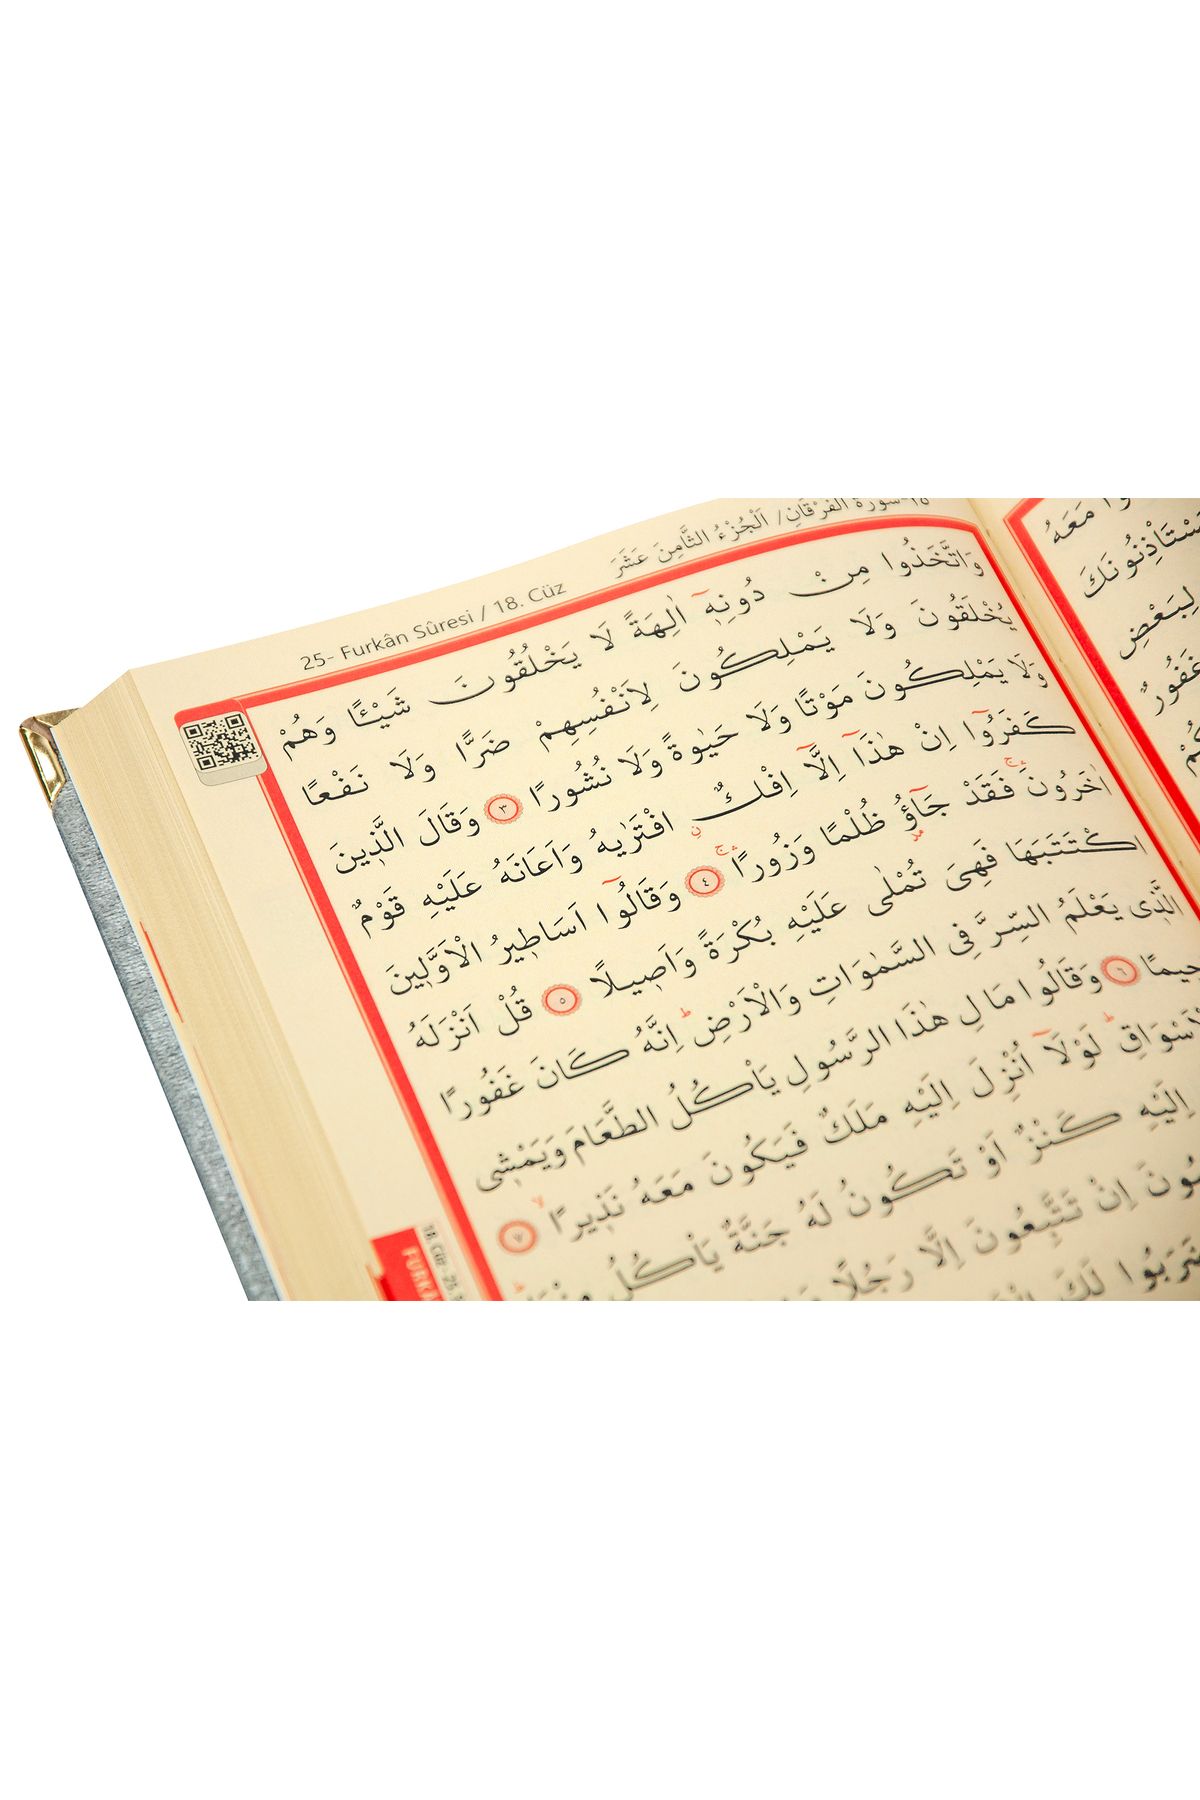 25- Furkân Sûresi / 18. Cüz
٢٥-سُورَةُ الْفُرْقَانِ / اَلْجُزْءُ الثَّامِنَ عَشَرَ
وَاتَّخَذُوا مِنْ دُونِه۪ٓ اٰلِهَةً لَا يَخْلُقُونَ شَيْـًٔا وَهُمْ
يُخْلَقُونَ وَلَا يَمْلِكُونَ لِاَنْفُسِهِمْ ضَرًّا وَلَا نَفْعًا
وَلَا يَمْلِكُونَ مَوْتًا وَلَا حَيٰوةً وَلَا نُشُورًا ﴿٣﴾ وَقَالَ الَّذ۪ينَ
كَفَرُٓوا اِنْ هٰذَٓا اِلَّٓا اِفْكٌ افْتَرٰيهُ وَاَعَانَهُ عَلَيْهِ قَوْمٌ
اٰخَرُونَ فَقَدْ جَٓاؤُ ظُلْمًا وَزُورًا ﴿٤﴾ وَقَالُٓوا اَسَاط۪يرُ الْاَوَّل۪ينَ
اكْتَتَبَهَا فَهِيَ تُمْلٰى عَلَيْهِ بُكْرَةً وَاَص۪يلًا ﴿٥﴾ قُلْ اَنْزَلَهُ
الَّذ۪ي يَعْلَمُ السِّرَّ فِي السَّمٰوَاتِ وَالْاَرْضِۜ اِنَّهُ كَانَ غَفُورًا
﴿٦﴾ وَقَالُوا مَالِ هٰذَا الرَّسُولِ يَأْكُلُ الطَّعَامَ وَيَمْش۪ي
لَوْلَٓا اُنْزِلَ اِلَيْهِ مَلَكٌ فَيَكُونَ مَعَهُ نَذ۪يرًا ﴿٧﴾
اِلَيْهِ كَنْزٌ اَوْ تَكُونُ لَهُ جَنَّةٌ يَأْكُلُ
اِنْ تَتَّبِعُونَ اِلَّا رَجُلًا
لَكَ
مَعَهُ
لِبَعْضِ
18. Cüz